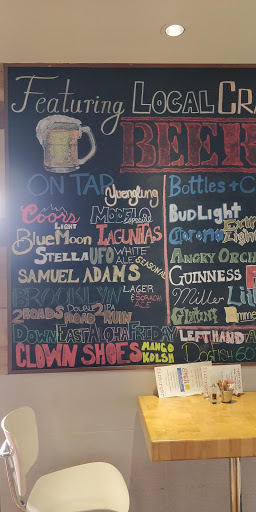 Featuring Local Cra
BEER
ON TAP
Yuengling
Coors Light
Modelo Especial
Blue Moon
Lagunitas
Stella
UFO White Ale
Seasonal
Samuel Adams
Brooklyn
Lager
Sorachi Ace
2 Roads
Double IPA
Road 2 Ruin
Down East Aloha Friday
Clown Shoes
Mango Kolsh
Bottles + C
Bud Light
Corona
Extra
Light
Angry Orch
Guinness
Miller Lit
Left Hand
Dogfish 60